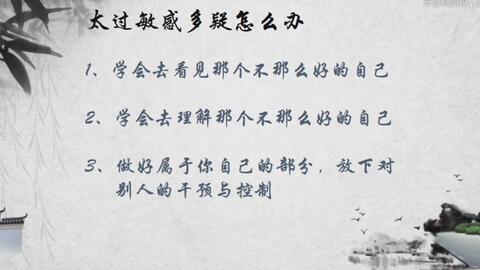 太过敏感多疑怎么办
1、学会去看见那个不那么好的自己
2、学会去理解那个不那么好的自己
3、做好属于你自己的部分，放下对
别人的干预与控制